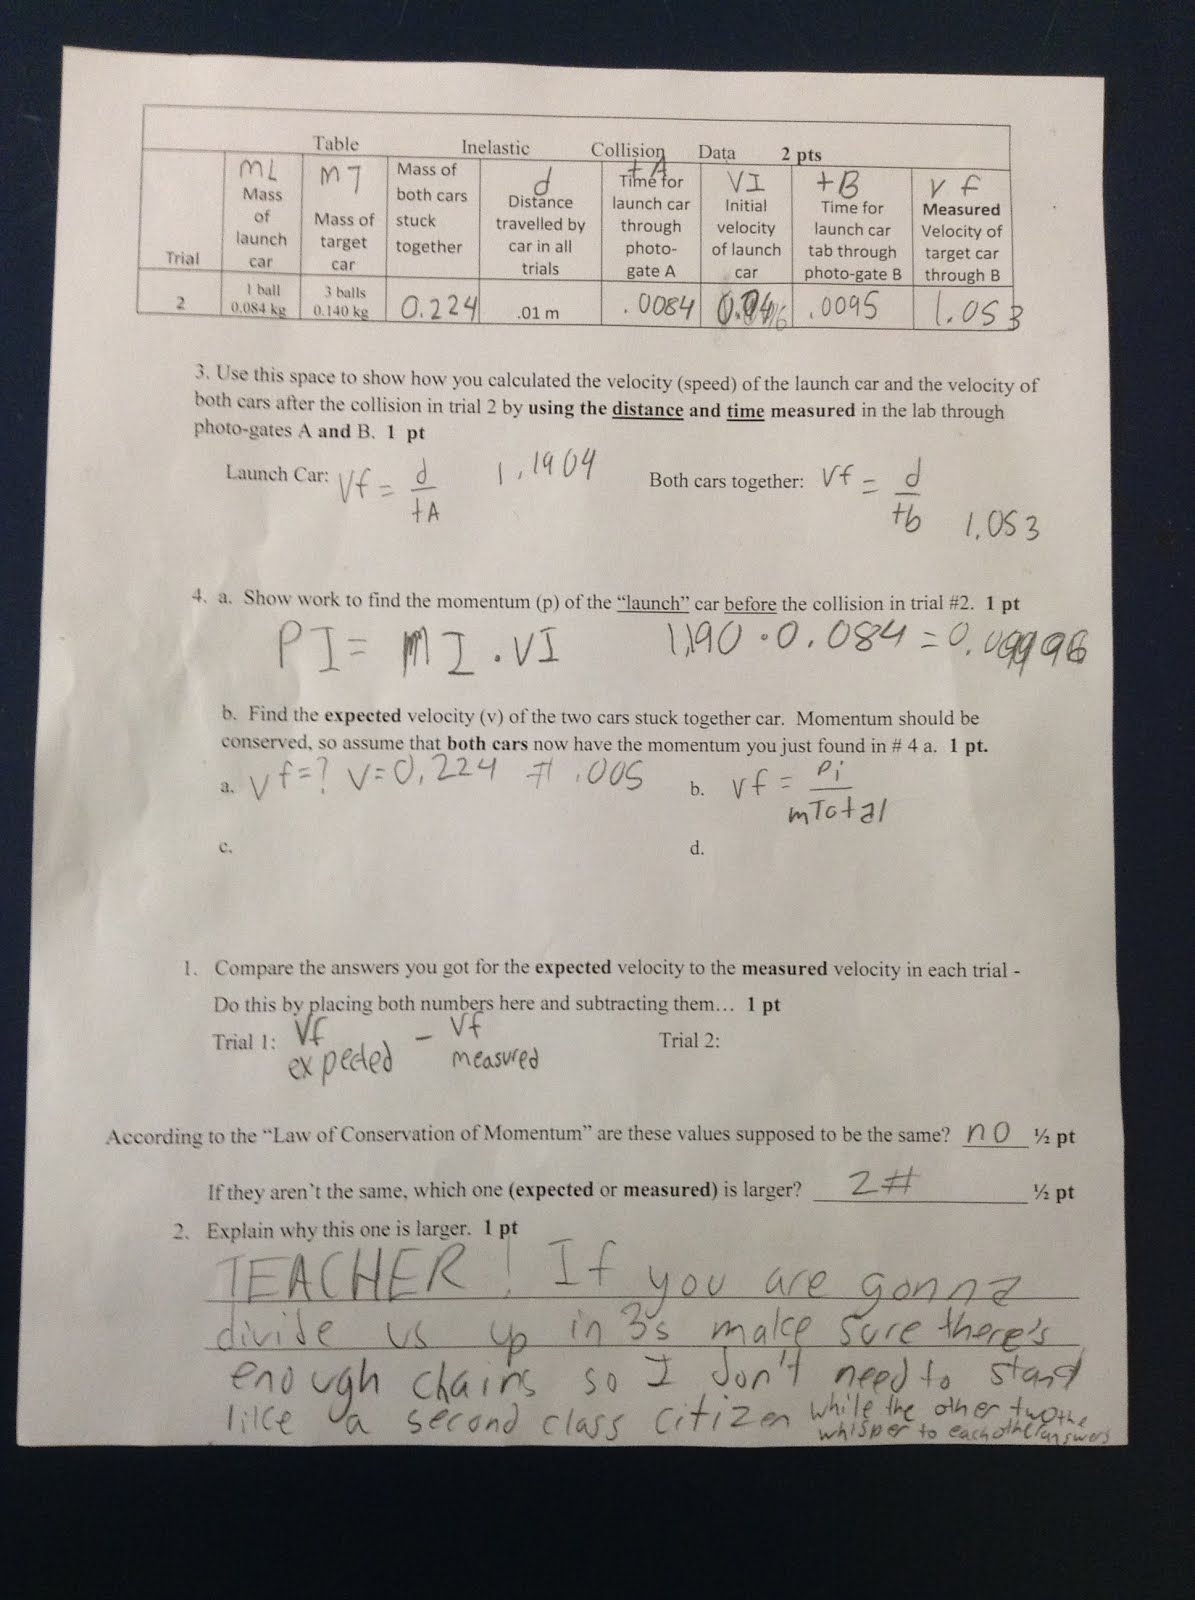 Table Inelastic Collision Data 2 pts
Trial
mL
Mass
of
launch
car
mT
Mass of
target
car
Mass of
both cars
stuck
together
d
Distance
travelled by
car in all
trials
tA
Time for
launch car
through
photo-
gate A
VI
Initial
velocity
of launch
car
tB
Time for
launch car
tab through
photo-gate B
vf
Measured
Velocity of
target car
through B
2
1 ball
0.084 kg
3 balls
0.140 kg
0.224
.01 m
.0084
.0095
1.053
3. Use this space to show how you calculated the velocity (speed) of the launch car and the velocity of
both cars after the collision in trial 2 by using the distance and time measured in the lab through
photo-gates A and B. 1 pt
Launch Car: Vf = d/tA 1.1904
Both cars together: Vf = d/tb 1.053
4. a. Show work to find the momentum (p) of the “launch” car before the collision in trial #2. 1 pt
PI = mI . VI 1,190 · 0.084 = 0.09996
b. Find the expected velocity (v) of the two cars stuck together car. Momentum should be
conserved, so assume that both cars now have the momentum you just found in # 4 a. 1 pt.
a. vf=? v=0,224 .005
b. vf = pi/mTotal
c.
d.
1. Compare the answers you got for the expected velocity to the measured velocity in each trial -
Do this by placing both numbers here and subtracting them… 1 pt
Trial 1: Vf expected - Vf measured
Trial 2:
According to the “Law of Conservation of Momentum” are these values supposed to be the same? no ½ pt
If they aren’t the same, which one (expected or measured) is larger? 2# ½ pt
2. Explain why this one is larger. 1 pt
TEACHER! If you are gonna
divide us up in 3's make sure there's
enough chairs so I don't need to stand
like a second class citizen while the other two
whisper to eachother the answers